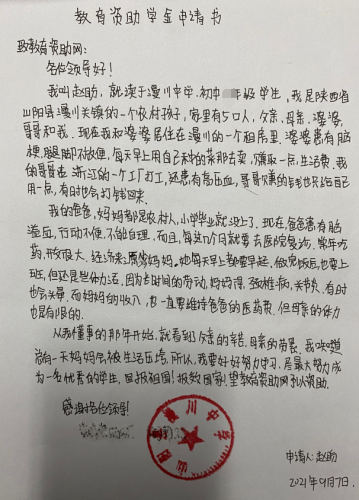 教育资助学金申请书
致教育资助网:
各位领导好!
我叫赵助,就读于漫川中学,初中年级学生,我是陕西省
山阳县漫川关镇的一个农村孩子,家里有5口人,父亲、母亲、婆婆、
哥哥和我。现在我和婆婆居住在漫川的一个租房里,婆婆患有脑
梗,腿脚不方便,每天早上用自己种的菜那去卖,赚取一点,生活费。我
的哥哥在浙江的一个工厂打工,还患有高压血,哥哥赚的钱也只给自己
用一点,有时也会打钱回来。
我的爸爸,妈妈都是农村人,小学毕业就没上了,现在,爸爸患有脑
溢血,行动不便,不能自理。而且,每算几个月就要去医院复诊,常年吃
药,开放很大。经济来源靠妈妈。她每天早上都要早起,做完饭后,也要上
班,但还是些体力活。因为长时间的劳动,妈妈得颈椎病,关节炎,有时
也会头晕。而妈妈的收入,也一直要维持爸爸的医药费,但母亲的体力
也是有限的。
从我懂事的那年开始,就看到父亲的辛苦。母亲的劳累。我知道
总有一天妈妈会被生活压垮。所以,我要好好努力学习,尽最大努力成
为一名优秀的学生,回报祖国!报效国家!望教育资助网予以资助。
感谢各位领导!
山阳县漫川中学
申请人:赵助
2021年9月7日.